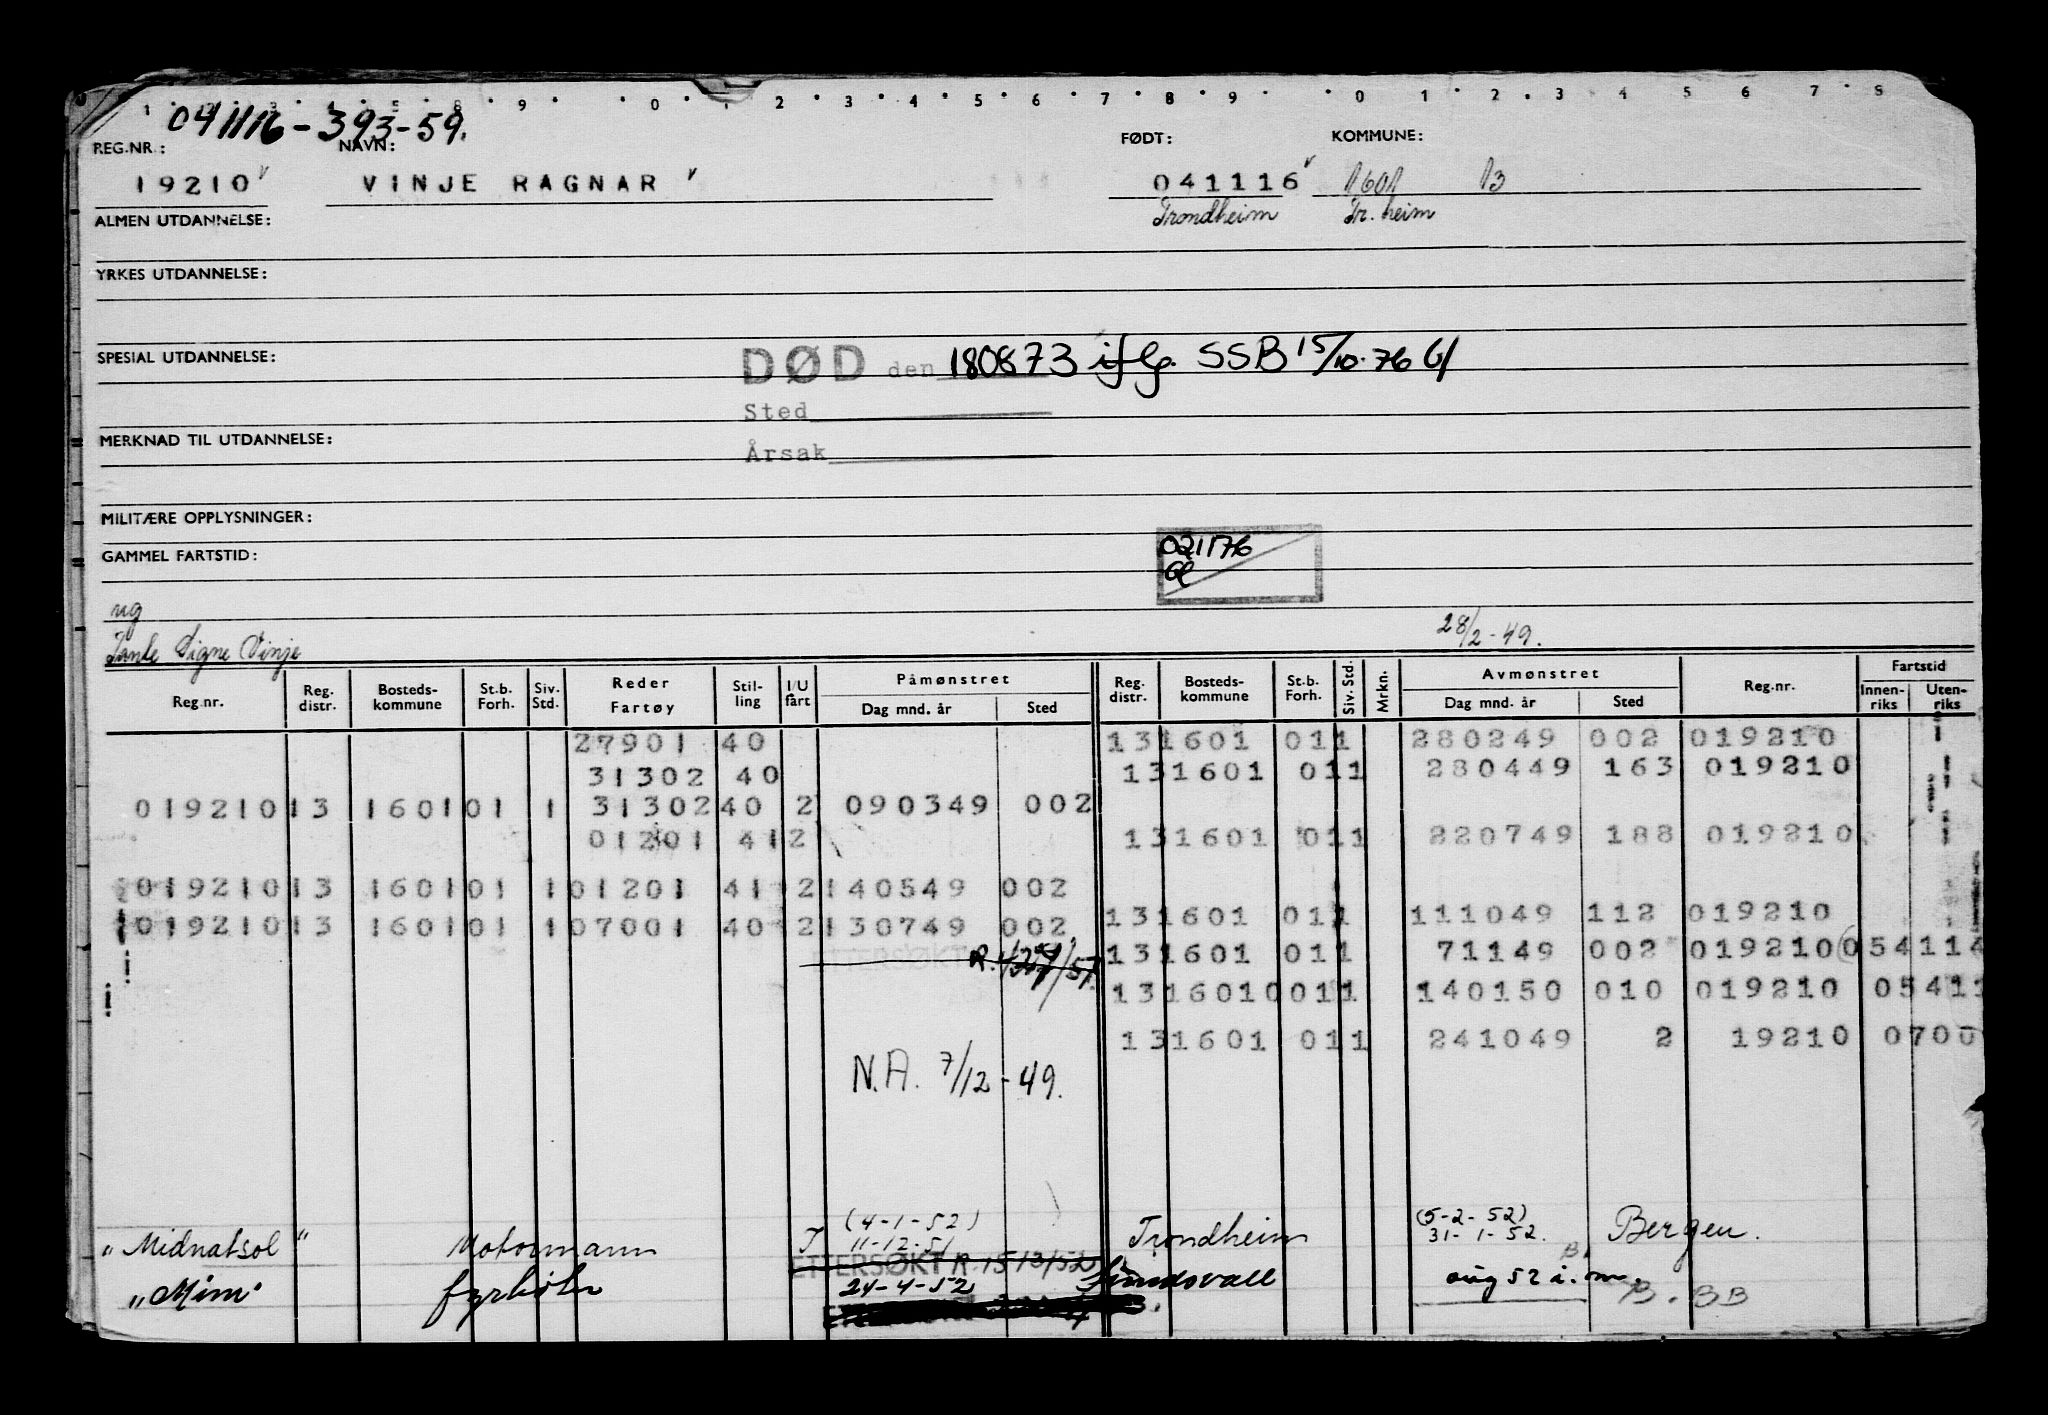 041116-393-59.
REG.NR.: NAVN: FØDT: KOMMUNE:
19210 VINJE RAGNAR 041116 1601 13
ALMEN UTDANNELSE: Trondheim Tr. heim
YRKES UTDANNELSE:
SPESIAL UTDANNELSE: DØD den 180873 iflg. SSB 15/10-76
Sted
MERKNAD TIL UTDANNELSE:
Årsak
MILITÆRE OPPLYSNINGER:
GAMMEL FARTSTID:
021176
ug
28/2-49.
Tante Signe Vinje
Reg.nr. Reg. distr. Bosteds-kommune St.b. Forh. Siv. Std. Reder Fartøy Stil-ling I/U fart Påmønstret Dag mnd. år Sted Reg. distr. Bosteds-kommune St.b. Forh. Siv. Std. Mrkn. Avmønstret Dag mnd. år Sted Reg.nr. Fartstid Innen-riks Uten-riks
27901 40 13 1601 01 1 280249 002 019210
31302 40 13 1601 01 1 280449 163 019210
019210 13 1601 01 1 31302 40 2 090349 002
01201 41 2 13 1601 01 1 220749 188 019210
019210 13 1601 01 1 01201 41 2 140549 002
019210 13 1601 01 1 07001 40 2 130749 002 13 1601 01 1 111049 112 019210
13 1601 01 1 71149 002 019210 054114
13 16010 01 1 140150 010 019210 05411
13 1601 01 1 241049 2 19210 0700
N.A. 7/12-49.
(4-1-52) (5-2-52)
"Midnatsol" Motormann 11-12-51 Trondheim 31-1-52. Bergen.
ETTERSØKT R 1513/52
"Mim" fyrbøter 24-4-52 Sundsvall aug 52 i. om.
B. BB